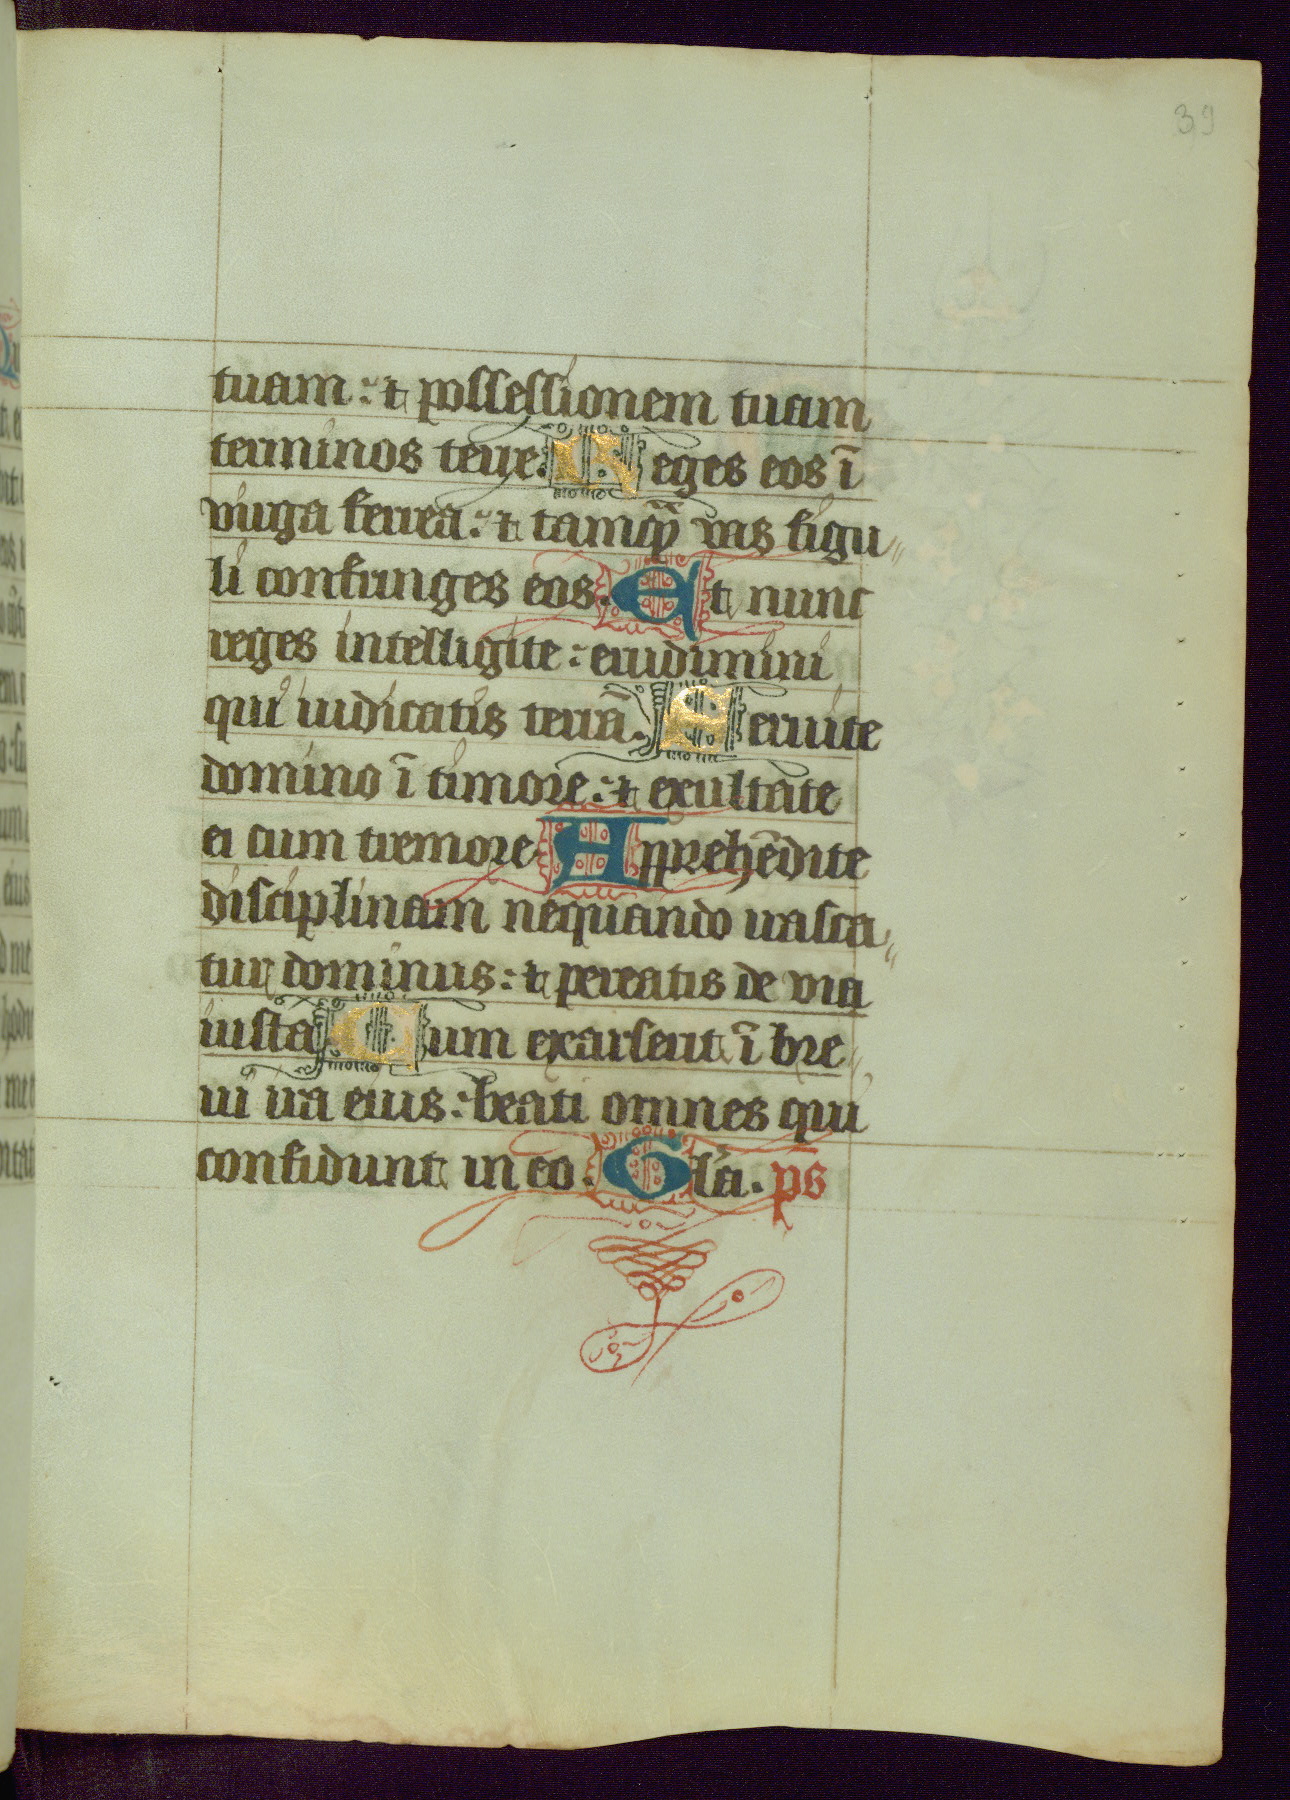 39
tuam : et possessionem tuam
terminos terre. Reges eos ī
uirga ferrea : et tamq̄ȝ uas figu
li confringes eos. Et nunc
reges intelligite : erudimini
qui iudicatis terrā. Seruite
domino ī timore : et exultate
ei cum tremore. Apprehēdite
disciplinam nequando irasca
tur dominus : et pereatis de uia
iusta. Cum exarserit ī bre
ui ira eius : beati omnes qui
confidunt in eo. Glā. ps̄